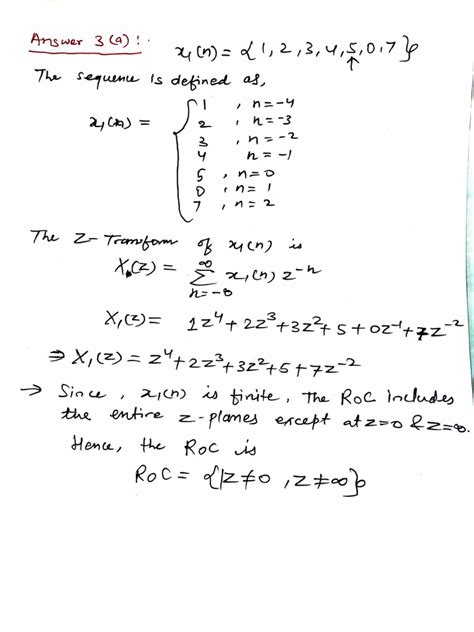 Answer 3(a):.
x₁(n) = {1, 2, 3, 4, 5, 0, 7}
↑
The sequence is defined as,
x₁(n) = { 1 , n=-4
2 , n=-3
3 , n=-2
4 n=-1
5 , n=0
0 , n=1
7 , n=2
The Z-Transform of x₁(n) is
X₁(z) = ∞ Σ n=-∞ x₁(n) z⁻ⁿ
X₁(z) = 1z⁴+2z³+3z²+5+0z⁻¹+7z⁻²
⇒ X₁(z) = z⁴+2z³+3z²+5+7z⁻²
→ Since, x₁(n) is finite, The RoC includes
the entire z-planes except at z=0 & z=∞.
Hence, the RoC is
RoC = {|z≠0, z≠∞}